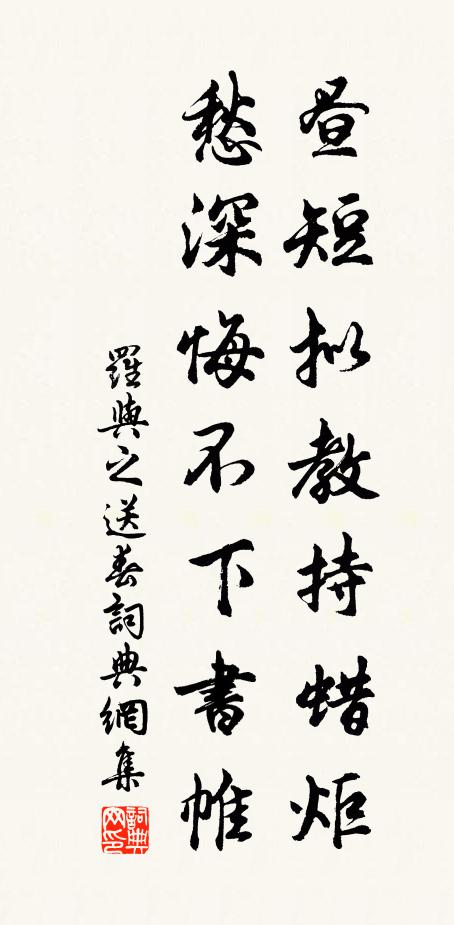 昼短拟教持蜡炬
愁深悔不下書帷
羅與之送春詞典網集
詞典网印